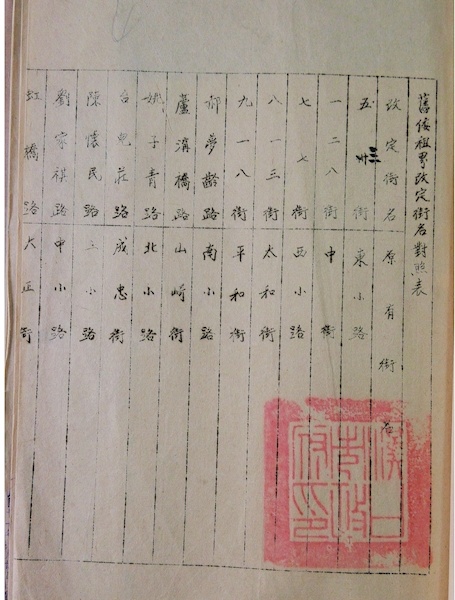 舊倭租界改定街名對照表
改定街名 原有街名
五卅街 東小路
一二八街 中街
七七街 西小路
八一三街 太和街
九一八街 平和街
郝夢齡路 南小路
蘆溝橋路 山崎街
姚子青路 北小路
台兒莊路 成忠街
陳懷民路 小路
劉家祺路 中小路
虹橋路 大正街
漢口市政府印